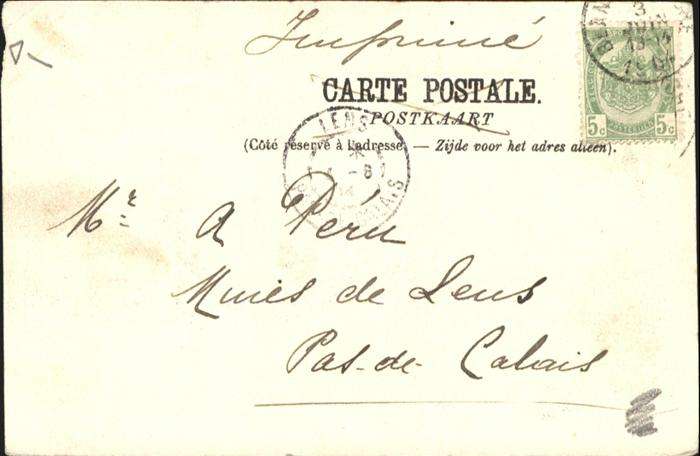 Imprimé
CARTE POSTALE.
POSTKAART
(Côté réservé à l'adresse. — Zijde voor het adres alleen).
5c 5c
LENS
CALAIS
Mr A Péru
Mines de Lens
Pas-de-Calais